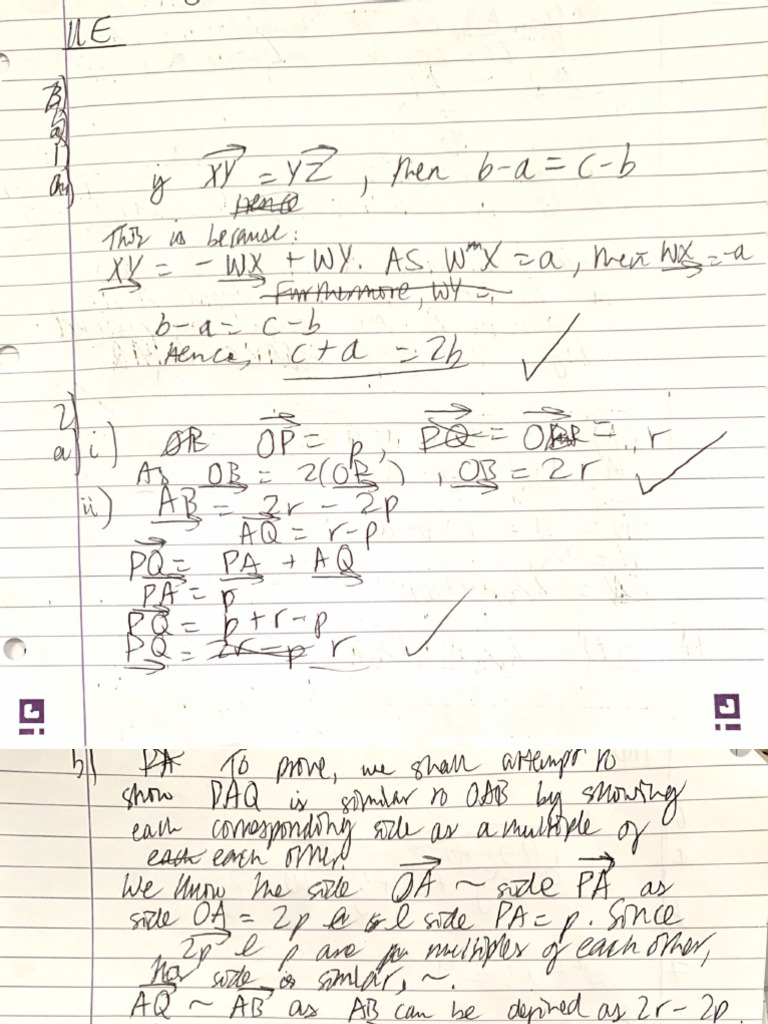 11E
if XY = YZ, then b-a = c-b
Hence
This is because:
XY = - WX + WY. AS WX = a, then WX = -a
Furthermore, WY =
b-a = c-b
Hence, c+a = 2b
2)
a) i) OP = p, PQ = = r
As OB = 2(OR), OB = 2r
ii) AB = 2r - 2p
AQ = r-p
PQ = PA + AQ
PA = p
PQ = p+r-p
PQ = 2r-p r
b) PA To prove, we shall attempt to
show PAQ is similar to OAB by showing
each corresponding side as a multiple of
each each other.
We know the side OA ~ side PA as
side OA = 2p & side PA = p. Since
2p & p are multiples of each other,
side is similar, ~.
AQ ~ AB as AB can be defined as 2r-2p